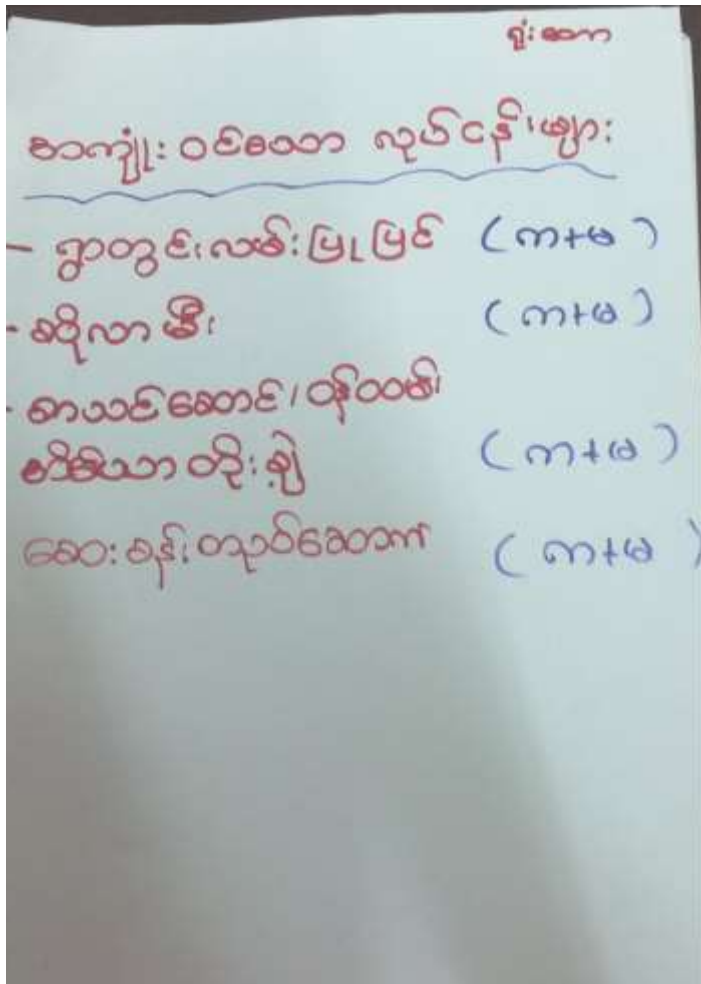 ရှုံးတော
အကျုံးဝင်သော လုပ်ငန်းများ
- ရွာတွင်းလမ်းပြုပြင် (က+မ)
- ဆိုလာမီး (က+မ)
- စာသင်ဆောင်၊ ဝန်ထမ်း
တိုးချဲ့ (က+မ)
ဆေးခန်းတည်ဆောက် (က+မ)